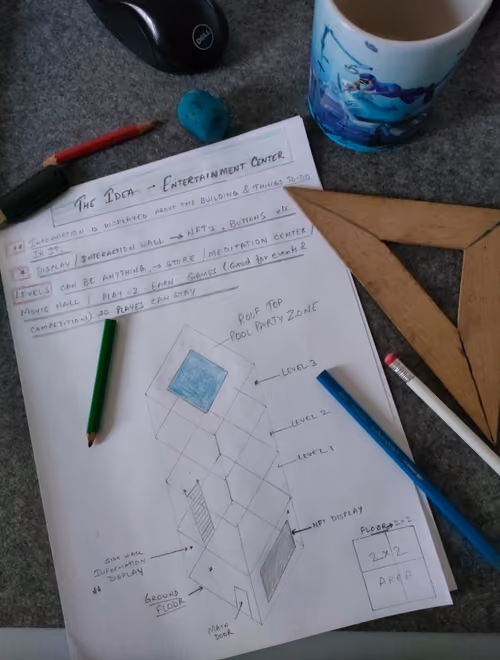 DELL
THE IDEA → ENTERTAINMENT CENTER
INFORMATION IS DISPLAYED ABOUT THE BUILDING & THINGS TO DO
IN IT
DISPLAY / INTERACTION WALL → NFTs, BUTTONS etc
LEVELS CAN BE ANYTHING → STORE / MEDITATION CENTER /
MOVIE HALL / PLAY-2-EARN GAMES (Good for events &
COMPETITION) SO PLAYERS CAN STAY
ROOF TOP
POOL PARTY ZONE
LEVEL 3
LEVEL 2
LEVEL 1
NFT DISPLAY
SIDE WALL
INFORMATION
DISPLAY
GROUND
FLOOR
MAIN
DOOR
FLOOR → 2×2
2×2
AREA